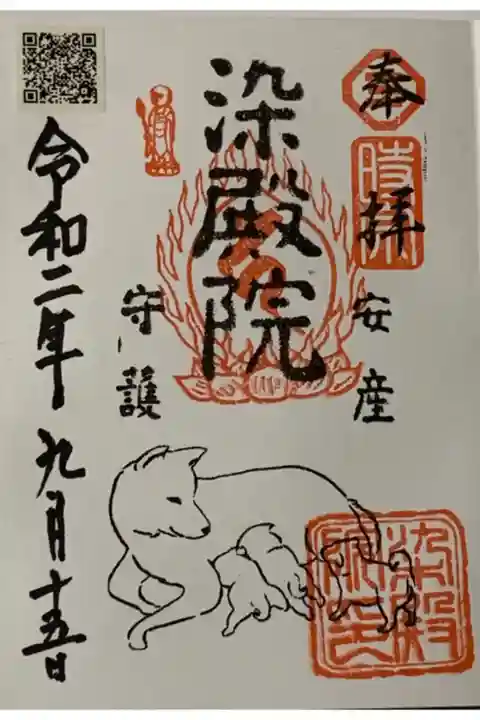 奉拝
時宗
安産
染殿院
守護
令和二年九月十五日
染殿院印